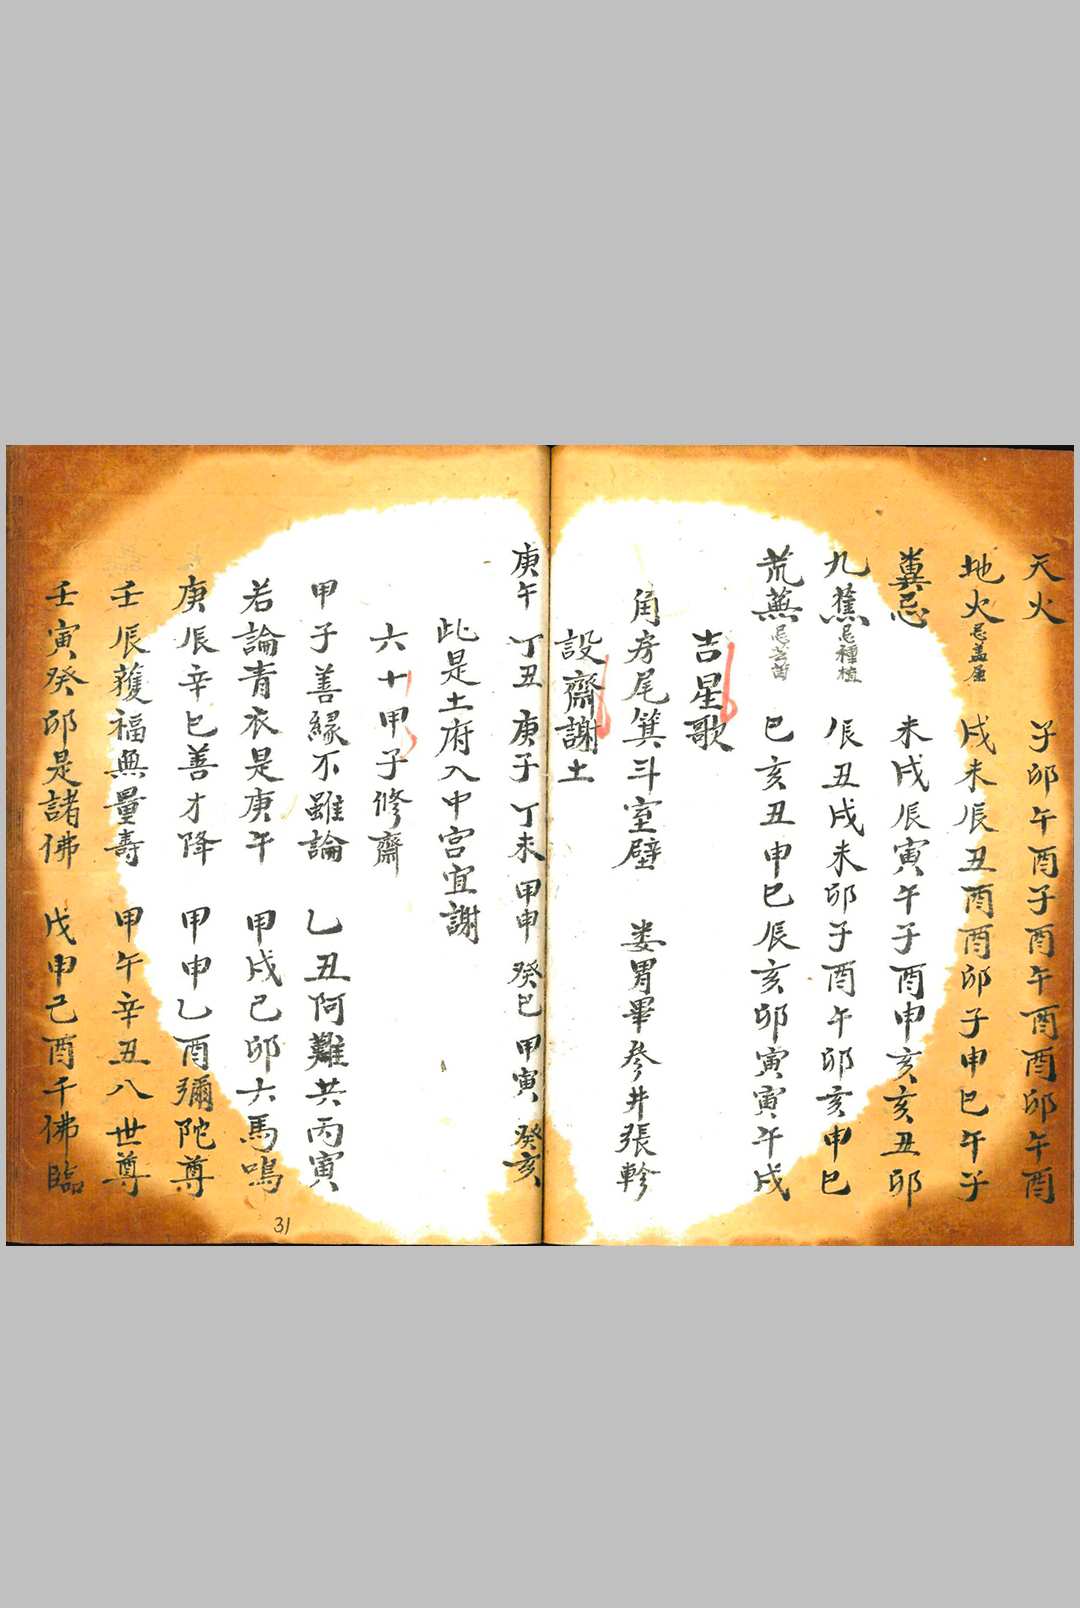 天火 子卯午酉子酉午酉酉卯午酉
地火忌蓋屋 戌未辰丑酉酉卯子申巳午子
糞忌 未戌辰寅午子酉申亥亥丑卯
九蕉忌種植 辰丑戌未卯子酉午卯亥申巳
荒蕪忌苗 巳亥丑申巳辰亥卯寅寅午戌
吉星歌
角房尾箕斗室壁 娄胃畢參井張軫
設齋謝土
庚午 丁丑 庚子 丁未 甲申 癸巳 甲寅 癸亥
此是土府入中宮宜謝
六十甲子修齋
甲子善緣不雖論 乙丑阿難共丙寅
若論青衣是庚午 甲戌己卯六馬鳴
庚辰辛巳善才降 甲申乙酉彌陀尊
壬辰獲福無量壽 甲午辛丑八世尊
壬寅癸卯是諸佛 戊申己酉千佛臨
31